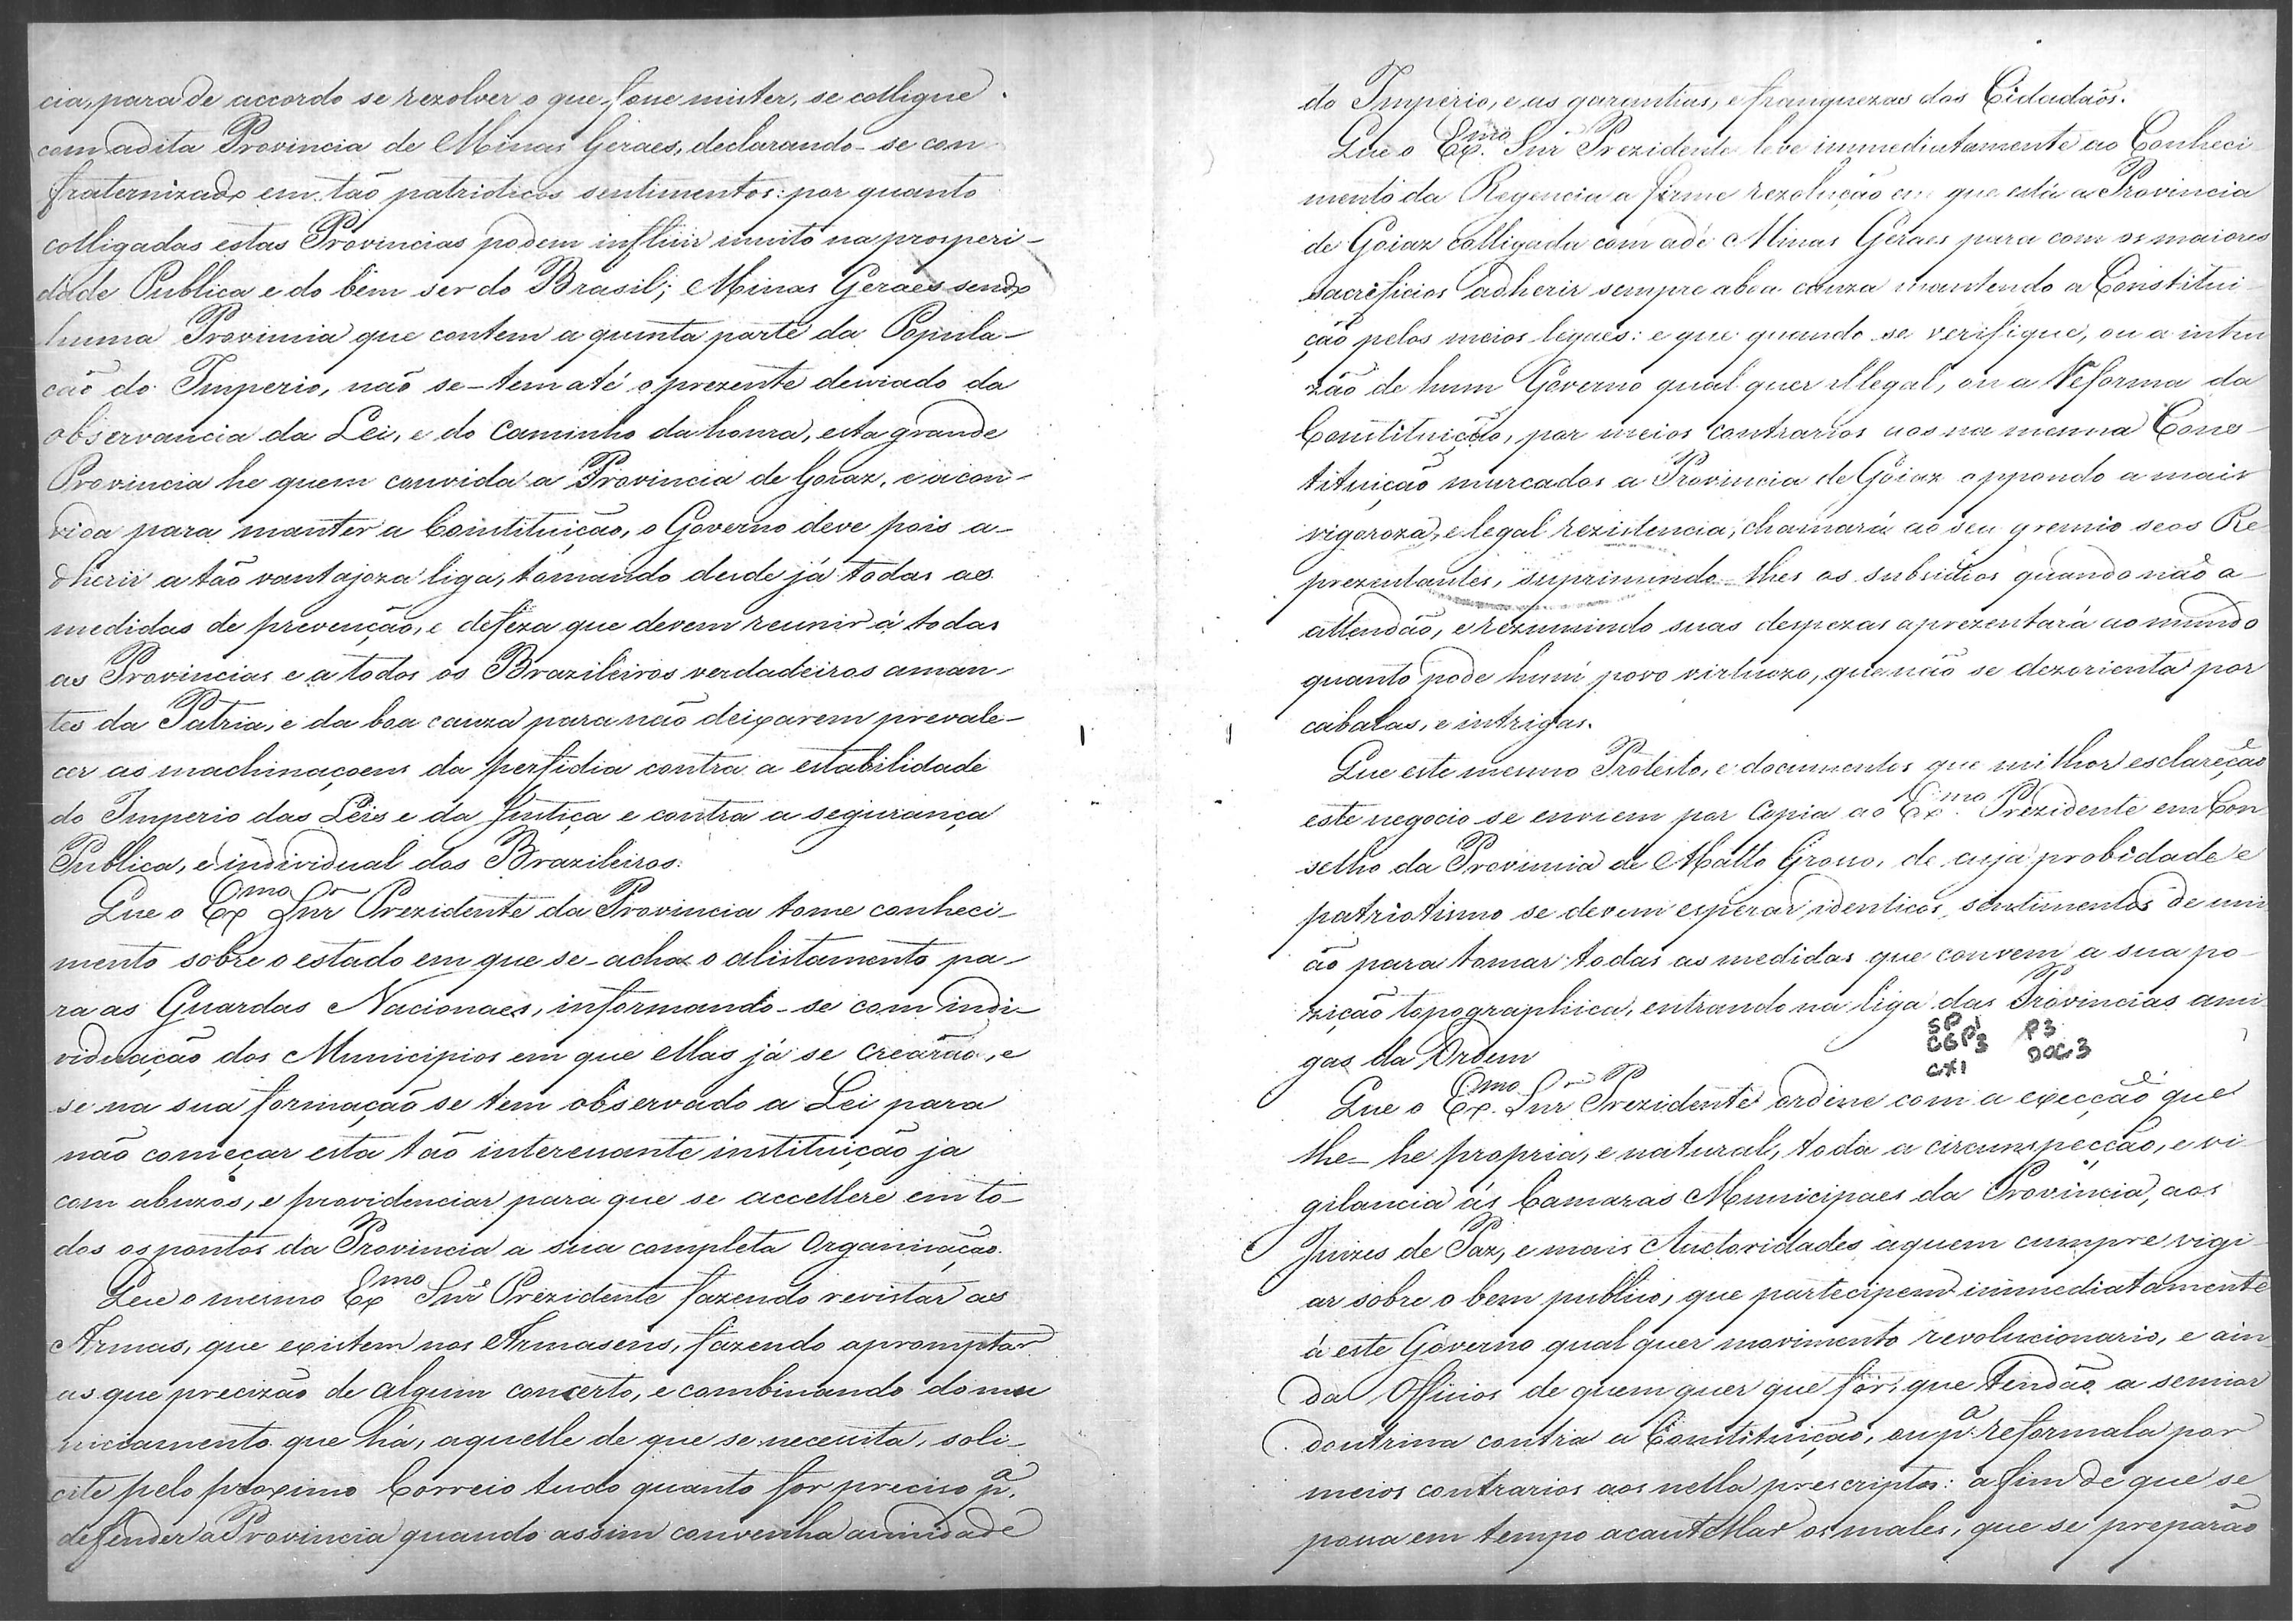 cia, para de accordo se rezolver o que fosse mister, se colligue
com adita Provincia de Minas Geraes, declarando-se con-
fraternizado em tão patrioticos sentimentos: por quanto
colligadas estas Provincias podem influir muito na prosperi-
dade Publica e do bem ser do Brasil; Minas Geraes sendo
huma Provincia que contem a quinta parte da Popula-
ção do Imperio, não se-tem até o prezente desviado da
observancia da Lei, e do caminho da honra, esta grande
Provincia he quem convida a Provincia de Goiaz, e a con-
vida para manter a Constituição, o Governo deve pois a-
dherir a tão vantajoza liga, tomando desde já todas as
medidas de prevenção, e defeza que devem reunir á todas
as Provincias e a todos os Brazileiros verdadeiros aman-
tes da Patria, e da boa cauza para não deixarem prevale-
cer as machinaçoens da perfidia contra a estabilidade
do Imperio das Leis e da Justiça e contra a segurança
Publica, e individual dos Brazileiros.
Que o Exmo Snr Prezidente da Provincia tome conheci-
mento sobre o estado em que se-acha o alistamento pa-
ra as Guardas Nacionaes, informando-se com indi-
viduação dos Municipios em que ellas já se crearão, e
se na sua formação se tem observado a Lei para
não começar esta tão interessante instituição ja
com abuzos, e providenciar para que se accellere em to-
dos os pontos da Provincia a sua completa Organisação.
Que o mesmo Exmo Snr Prezidente fazendo revistar as
Armas, que existem nos Armasens, fazendo apromptar
as que precizão de algum concerto, e combinando do mu
niciamento que há, aquelle de que se necessita, soli-
cite pelo proximo Correio tudo quanto for preciso pa.
defender a Provincia quando assim convenha a unidade
do Imperio, e as garantias, e franquezas dos Cidadaõs.
Que o Exmo. Snr Prezidente leve immediatamente ao Conheci
mento da Regencia a firme rezolução em que está a Provincia
de Goiaz colligada com adé Minas Geraes para com os maiores
sacrificios adherir sempre aboa cauza mantendo a Constitui
ção pelos meios legaes: e que quando se verifique, ou a intru
zão de hum Governo qual quer illegal, ou a Reforma da
Constituição, por meios contrarios aos na mesma Cons-
tituição marcados a Provincia de Goiaz oppondo a mais
vigoroza, e legal rezistencia, chamará ao seu gremio seos Re
prezentantes, suprimindo-lhes os subsidios quando não a-
attendão, e rezumindo suas despezas aprezentará ao mundo
quanto pode hum povo virtuozo, que não se dezorienta por
cabalas, e intrigas.
Que este mesmo Protesto, e documentos que milhor esclareção
este negocio se enviem por Copia ao Exmo. Prezidente em Con
selho da Provincia de Matto Grosso, de cuja probidade e
patriotismo se devem esperar identicos sentimentos de uni
ão para tomar todas as medidas que convem a sua po-
zição topographica, entrando na liga das Provincias ami
gas da Ordem
SP 1 P3
CGP3 DOC3
CX1
Que o Exmo. Snr Prezidente ordene com a execção que
lhe-he propria, e natural, toda a circumspecção, e vi
gilancia ás Camaras Municipaes da Provincia, aos
Juizes de Paz, e mais Auctoridades aquem cumpre vigi
ar sobre o bem publico, que partecipem immediatamente
á este Governo qual quer movimento revolucionario, e ain
da Officios de quem quer que for, que tendão a semiar
doutrina contra a Constituição, ou pa. reformala por
meios contrarios aos nella prescriptos: a fim de que se
possa em tempo acautellar os males, que se preparão